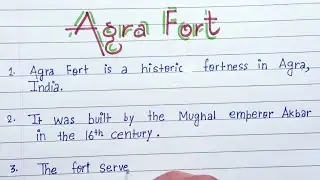 Agra Fort
1. Agra Fort is a historic fortness in Agra,
India.
2. It was built by the Mughal emperor Akbar
in the 16th century.
3. The fort serve